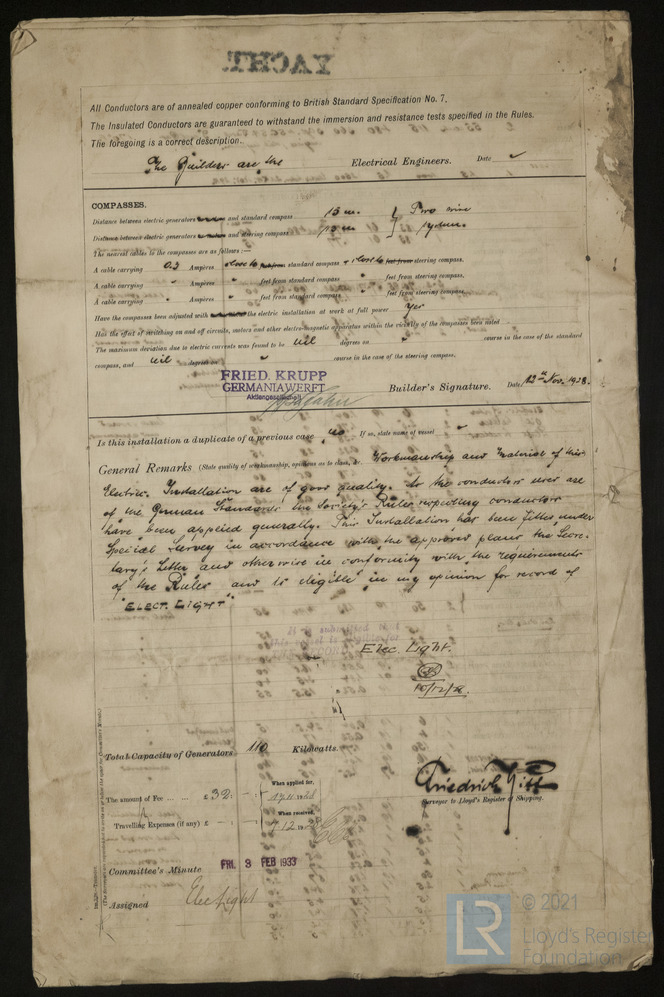 YACHT
All Conductors are of annealed copper conforming to British Standard Specification No. 7.
The Insulated Conductors are guaranteed to withstand the immersion and resistance tests specified in the Rules.
The foregoing is a correct description.
The Builders are the Electrical Engineers. Date
COMPASSES.
Distance between electric generators and standard compass 15 m. Two wire
Distance between electric generators and steering compass 15 m. system.
The nearest cables to the compasses are as follows:—
A cable carrying 0.3 Ampères close to feet from standard compass + close to feet from steering compass.
A cable carrying " Ampères " feet from standard compass " feet from steering compass.
A cable carrying " Ampères " feet from standard compass " feet from steering compass.
Have the compasses been adjusted with the electric installation at work at full power yes
Has the effect of switching on and off circuits, motors and other electro-magnetic apparatus within the vicinity of the compasses been noted
The maximum deviation due to electric currents was found to be nil degrees on " course in the case of the standard
compass, and nil degrees on " course in the case of the steering compass.
FRIED. KRUPP
GERMANIAWERFT
Aktiengesellschaft
Builder's Signature. Date 12th Nov. 1928.
Is this installation a duplicate of a previous case no If so, state name of vessel
General Remarks (State quality of workmanship, opinions as to class, &c. Workmanship and Material of this
Electric Installation are of good quality. As the conductors used are
of the German Standards the Society's Rules respecting conductors
have been applied generally. This Installation has been fitted under
Special Survey in accordance with the approved plans the Secre-
tary's Letter and otherwise in conformity with the requirements
of the Rules and is eligible in my opinion for record of
"ELECT. LIGHT"
It is submitted that
this vessel is eligible for
Elec. Light.
10/12/28.
Total Capacity of Generators 110 Kilowatts.
The amount of Fee ... ... £ 32: When applied for,
Travelling Expenses (if any) £ When received,
Surveyor to Lloyd's Register of Shipping.
Committee's Minute FRI. 3 FEB 1933
Assigned Elec Light
LR
© 2021
Lloyd's Registe
Foundation